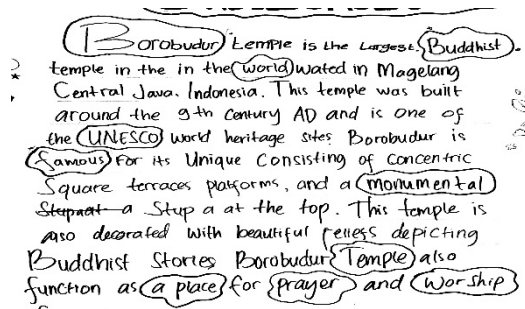 Borobudur temple is the Largest, Buddhist.
temple in the in the world wated in Magelang
Central Java. Indonesia. This temple was built
around the 9th Century AD and is one of
the UNESCO world heritage sites Borobudur is
famous For its Unique Consisting of concentric
Square terraces paltforms, and a monumental
a Stup a at the top. This temple is
also decorated with beautiful depicting
Buddhist Stories Borobudur Temple also
function as a place for prayer and worship